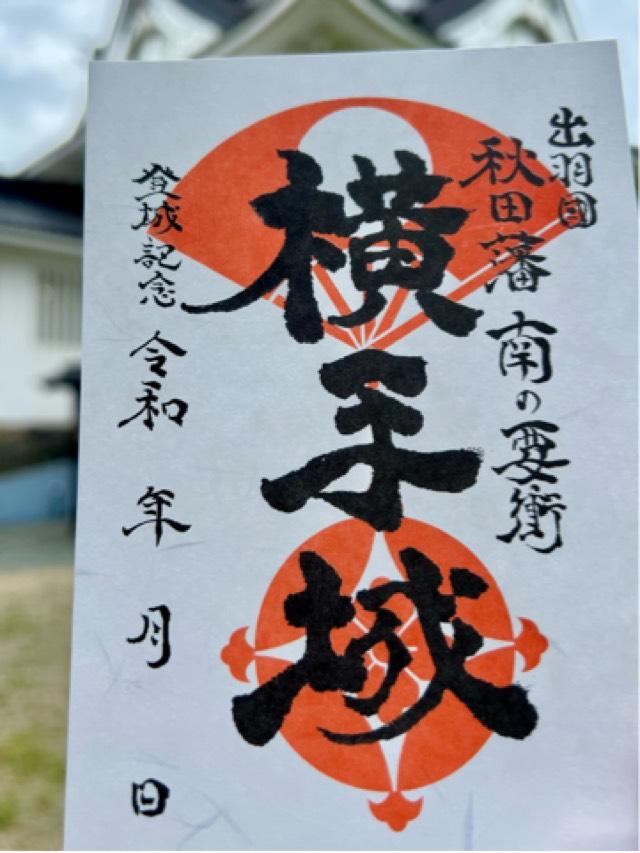 出羽国
秋田藩 南の要衝
横手城
登城記念 令和 年 月 日